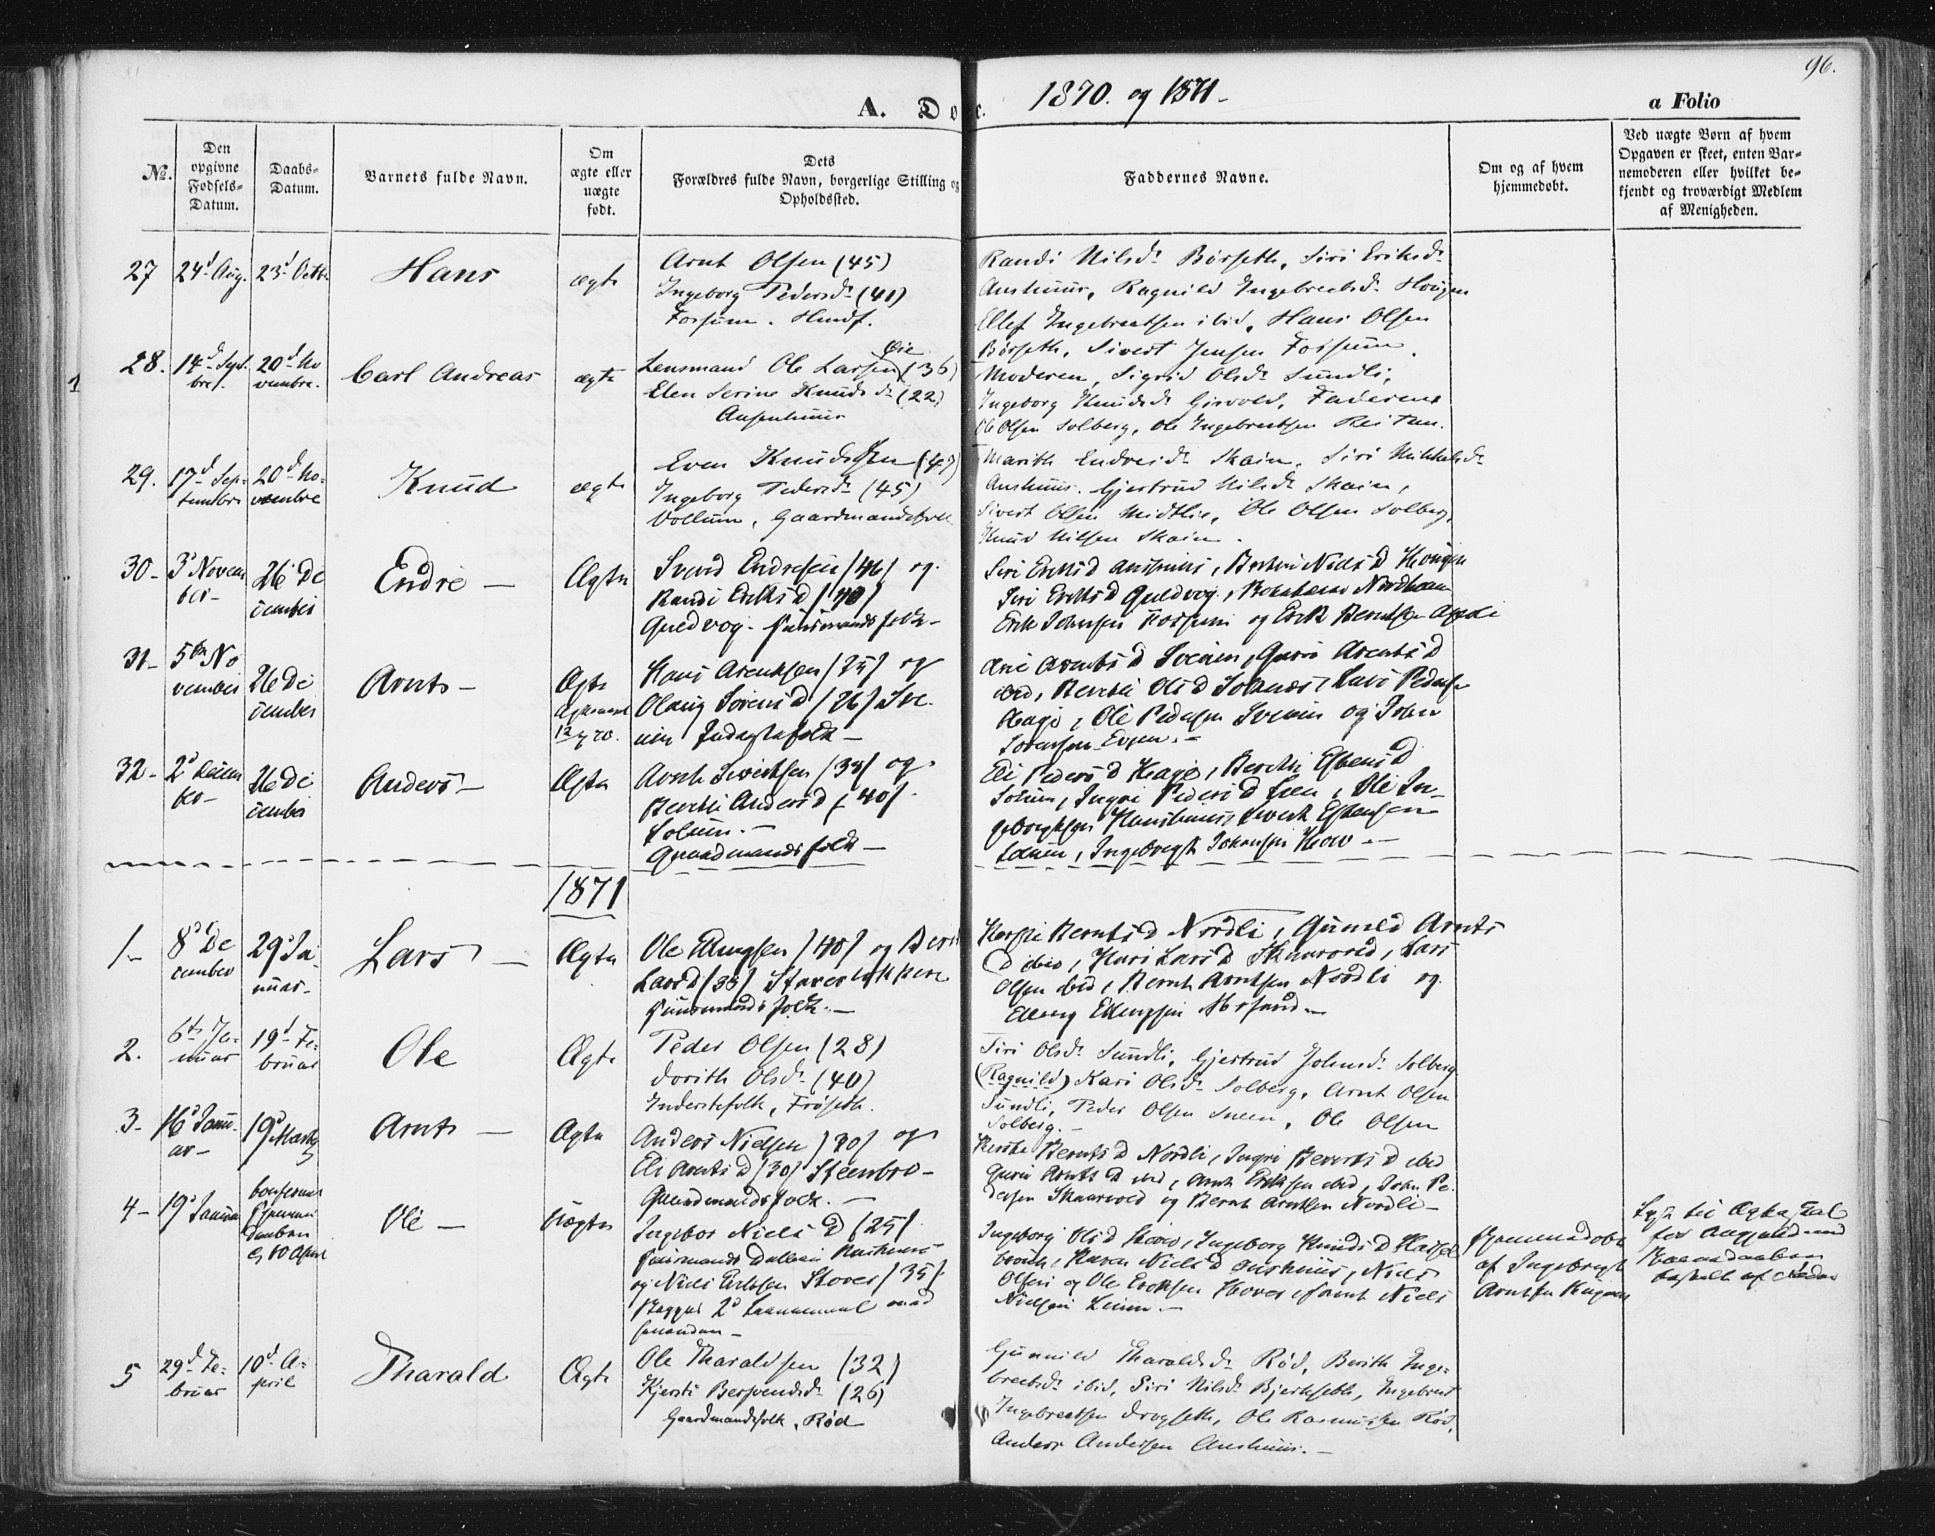 96.
A. Do c. 1870. og 1871 -
a Folio
No.
Den opgivne Fødsels-Datum.
Daabs-Datum.
Barnets fulde Navn.
Om ægte eller uægte født.
Dets Forældres fulde Navn, borgerlige Stilling og Opholdssted.
Faddernes Navne.
Om og af hvem hjemmedøbt.
Ved uægte Børn af hvem Opgaven er skeet, enten Bar-nemoderen eller hvilket be-kjendt og troværdigt Medlem af Menigheden.
27 24d Aug. 23d Octbr Hans ægte
Arnt Olsen (45)
Ingeborg Pedersdr (41)
Forsum. Huusf.
Randi Nilsdr Børseth, Siri Eriksdr
Aushuus, Ragnild Ingebrechtsdr Hougen
Ellef Ingebrechtsen ibid, Hans Olsen
Børseth, Sivert Jensen Forsum.
1
28. 14d Sept-br. 20d No-vembre. Carl Andreas ægte
Lensmand Ole Larsen Øie (36)
Elen Serine Knudsdr (22)
Moderen, Sigrid Olsdr Sundli,
Ingeborg Knudsdr Grovold, Faderen
Ole Olsen Solberg, Ole Ingebrechtsen Reitan.
29. 17d Sep-tembre 20d No-vembre Knud ægte
Even Knudsen (47)
Ingeborg Pedersdr (45)
Vollum, Gaardmandsfolk
Marith Endresdr Skain, Siri Mikkelsdr
Aushuus. Gjertrud Nilsdr Skain,
Sivert Olsen Midtlie, Ole Olsen Solberg,
Knud Nilsen Skain.
30- 3d Novem ber- 26d De cember Endre - Ægte
Svend Endresen (46) og
Randi Eriksd (40)
Guldvog- Huusmandsfolk-
Siri Eriksd Aushuus, Berthe Nielsd Hougen
Siri Eriksd Guldvog,
Erik Johnsen Forsum og Erik Berntsen
31- 5te No vember 26 De cember Arnt - Ægte
Hans Arentsen (25) og
Olaug Sørensd (26) Sve-
en Inderstefolk -
Arentsd Sveen, Guru Arentsd
ibid, Berethe Olsd Solnæs, Lars Pedersen
Hage, Ole Pedersen Sveen og John
Sørensen Evjen. -
32- 2d Decem ber- 26 De cember Anders - Ægte
Arnt Sivertsen (38) og
Berethe Andersd (40)
Solum. -
Gaardmandsfolk -
Eli Pedersd Hage, Berethe Estensd
Solum, Ingri Pedersd Leer, Ole In-
gebrigtsen Hanshuus, Sivert Estensen
Solum, Ingebrigt Johansen Hov -
1871
1- 8d De cember 29d Ja-nuar- Lars - Ægte
Ole Ellingsen (40) og Berit
Larsd (33) Støreslykken
Huusmandsfolk. -
Kirstie Berntsd Nordli, Gunild Arnts
d ibid, Kari Larsd Skaarvold, Lars
Olsen ibid, Bernt Arntsen Nordli og
Elling Ellingsen -
2. 6te Ja-nuar 19d Fe-bruar Ole Ægte
Peder Olsen (28)
Dorith Olsdr (40)
Inderstefolk, Frøseth.
Siri Olsdr Sundli, Gjertrud Johnsdr Solberg
(Ragnild) Kari Olsdr Solberg, Arnt Olsen
Sundli, Peder Olsen Sneen, Ole Olsen
Solberg. -
3- 16d Janu-ar- 19d Marts Arnt - Ægte
Anders Nielsen (30) og
Eli Arntsd (30) Steenbro-
Gaardmandsfolk. -
Kirstie Berntsd Nordli, Ingri Berntsd ibid
Guru Arntsd ibid, Arnt Eriksen ibid, John Pe-
dersen Skaarvold og Bernt Arntsen Nordli -
4- 19d Januar 10 April Ole - Uægte
Ingebor Nielsd (25)
og Niels Eriksen Stores (35)
Begges 2d Leiermaal med
hinanden -
Ingeborg Olsd Hov, Ingeborg Knudsd
Karen Nielsd Aushuus, Niels
Olsen og Ole Eriksen Hover samt Niels
Nielsen Leer. -
Hjemmedøbt
af Ingebrigt
Arntsen
5 29d Fe-bruar 10d A-pril Tharald Ægte
Ole Tharaldsen (32)
Kjersti Bersvendsdr (26)
Gaardmandsfolk, Rød
Gunnild Tharaldsdr Rød, Berith Inge-
brechtsdr ibid, Siri Nilsdr Bjerkseth, Ingebrect
Ingebrectsen Drogseth, Ole Rasmussen Rød,
Anders Andersen Aushuus. -